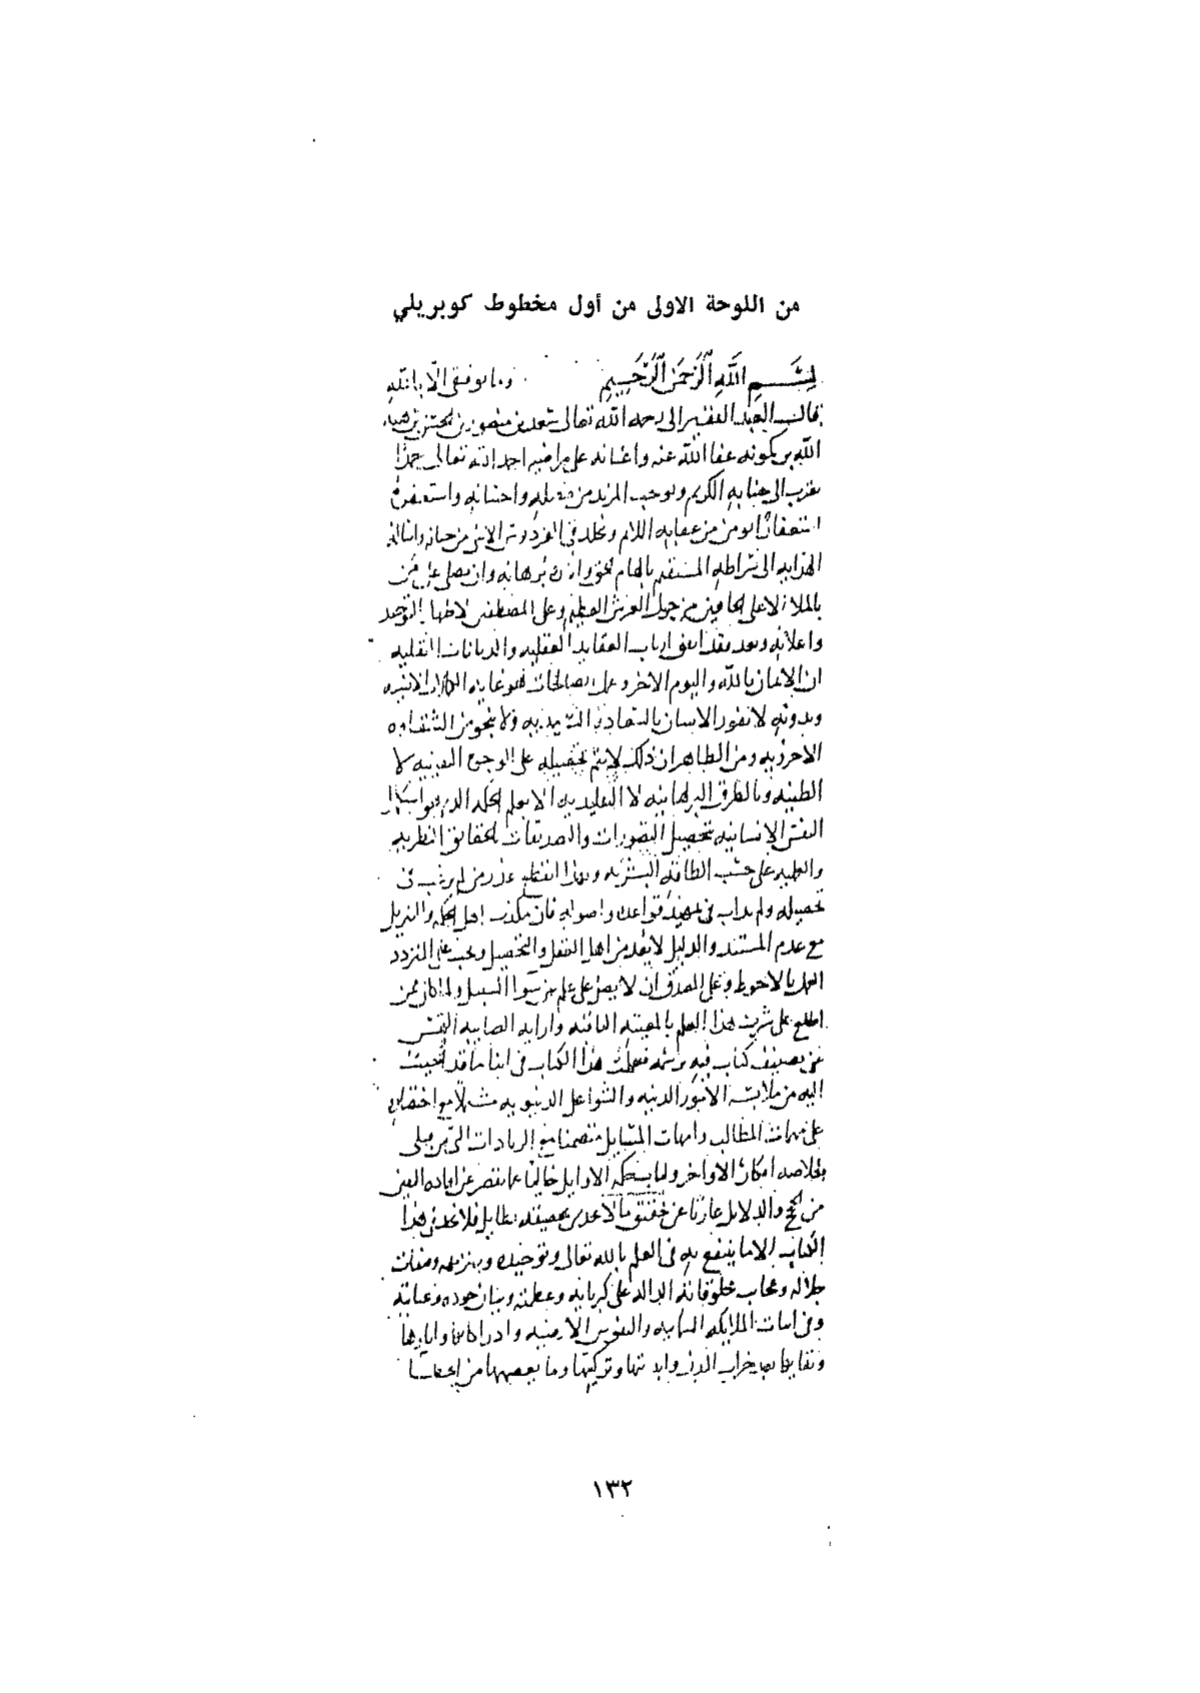 من اللوحة الاولى من أول مخطوط كوبريلي
بِسْمِ اللَّهِ الرَّحْمَنِ الرَّحِيمِ وما توفيقى الا بالله
قال العبد الفقير الى رحمة الله تعالى سعد بن منصور بن الحسن بن هبة
الله بن كمونه عفا الله عنه واعانه على مراضيه احمد الله تعالى حمدا
يقرب الى جنابه الكريم ويوجب المزيد من فضله واحسانه واستغفره
استغفارا يومن من عقابه الاليم ويخلد فى الفردوس من جنانه واساله
الهدايه الى صراطه المستقيم بالهام الحق وان يصلى على
بالملا الاعلى الحافين من حول العرش العظيم وعلى المصطفين لاظهار التوحيد
واعلانه وبعد فقد اتفق ارباب العقايد العقليه والديانات النقليه
ان الايمان بالله واليوم الاخر وعمل الصالحات هو غاية الكمالات الانسيه
وبدونه لا يفوز الانسان بالسعادة السرمديه ولا ينجو من الشقاوه
الاخرويه ومن الظاهر ان ذلك لا يتم تحصيله على الوجوه اليقينيه لا
الظنيه وبالطرق البرهانيه لا التقليديه الا بعلم الحكمه الذى هو استكمال
النفس الانسانيه بتحصيل التصورات والتصديقات بالحقايق النظريه
والعمليه على حسب الطاقه البشريه وبهذا عذر من لم يرغب فى
تحصيله ولم يداب فى تمهيد قواعده واصوله فان مكذب اهل الحكمه والتنزيل
مع عدم المستند والدليل لا يعد من اهل العقل والتحصيل ويجب على المتردد
العمل بالاحوط وعلى المصدق ان لا يصر على علم عن سوا السبيل ولما كان ممن
اطلع على شرف هذا العلم وارايه الصايبه التمس
منى تصنيف كتاب فيه فعملت هذا الكتاب فى اثنا ما قد
اليه من ملابسة الامور الدنيه والشواغل الدنيويه مشتملا مع اختصاره
على مهمات المطالب وامهات المسايل متضمنا مع الزيادات التى من قبلى
خلاصة افكار الاواخر ولباب حكمة الاوايل خاليا عما يقصر عن افاده اليقين
من الحجج والدلايل عاريا عن تحقيق ما لا بطايل فلا تجد فى هذا
الكتاب الا ما ينتفع به فى العلم بالله تعالى وتوحيده وتنزيهه وصفات
جلاله وعجايب مخلوقاته الداله على كبريايه وعظمته وبيان جوده وعنايته
وفى اثبات الملايكه السماويه والنفوس الارضيه وادراكاتها واثارها
وبقايها بعد خراب البدن وابديتها وتزكيتها وما يعصمها من
١٣٢